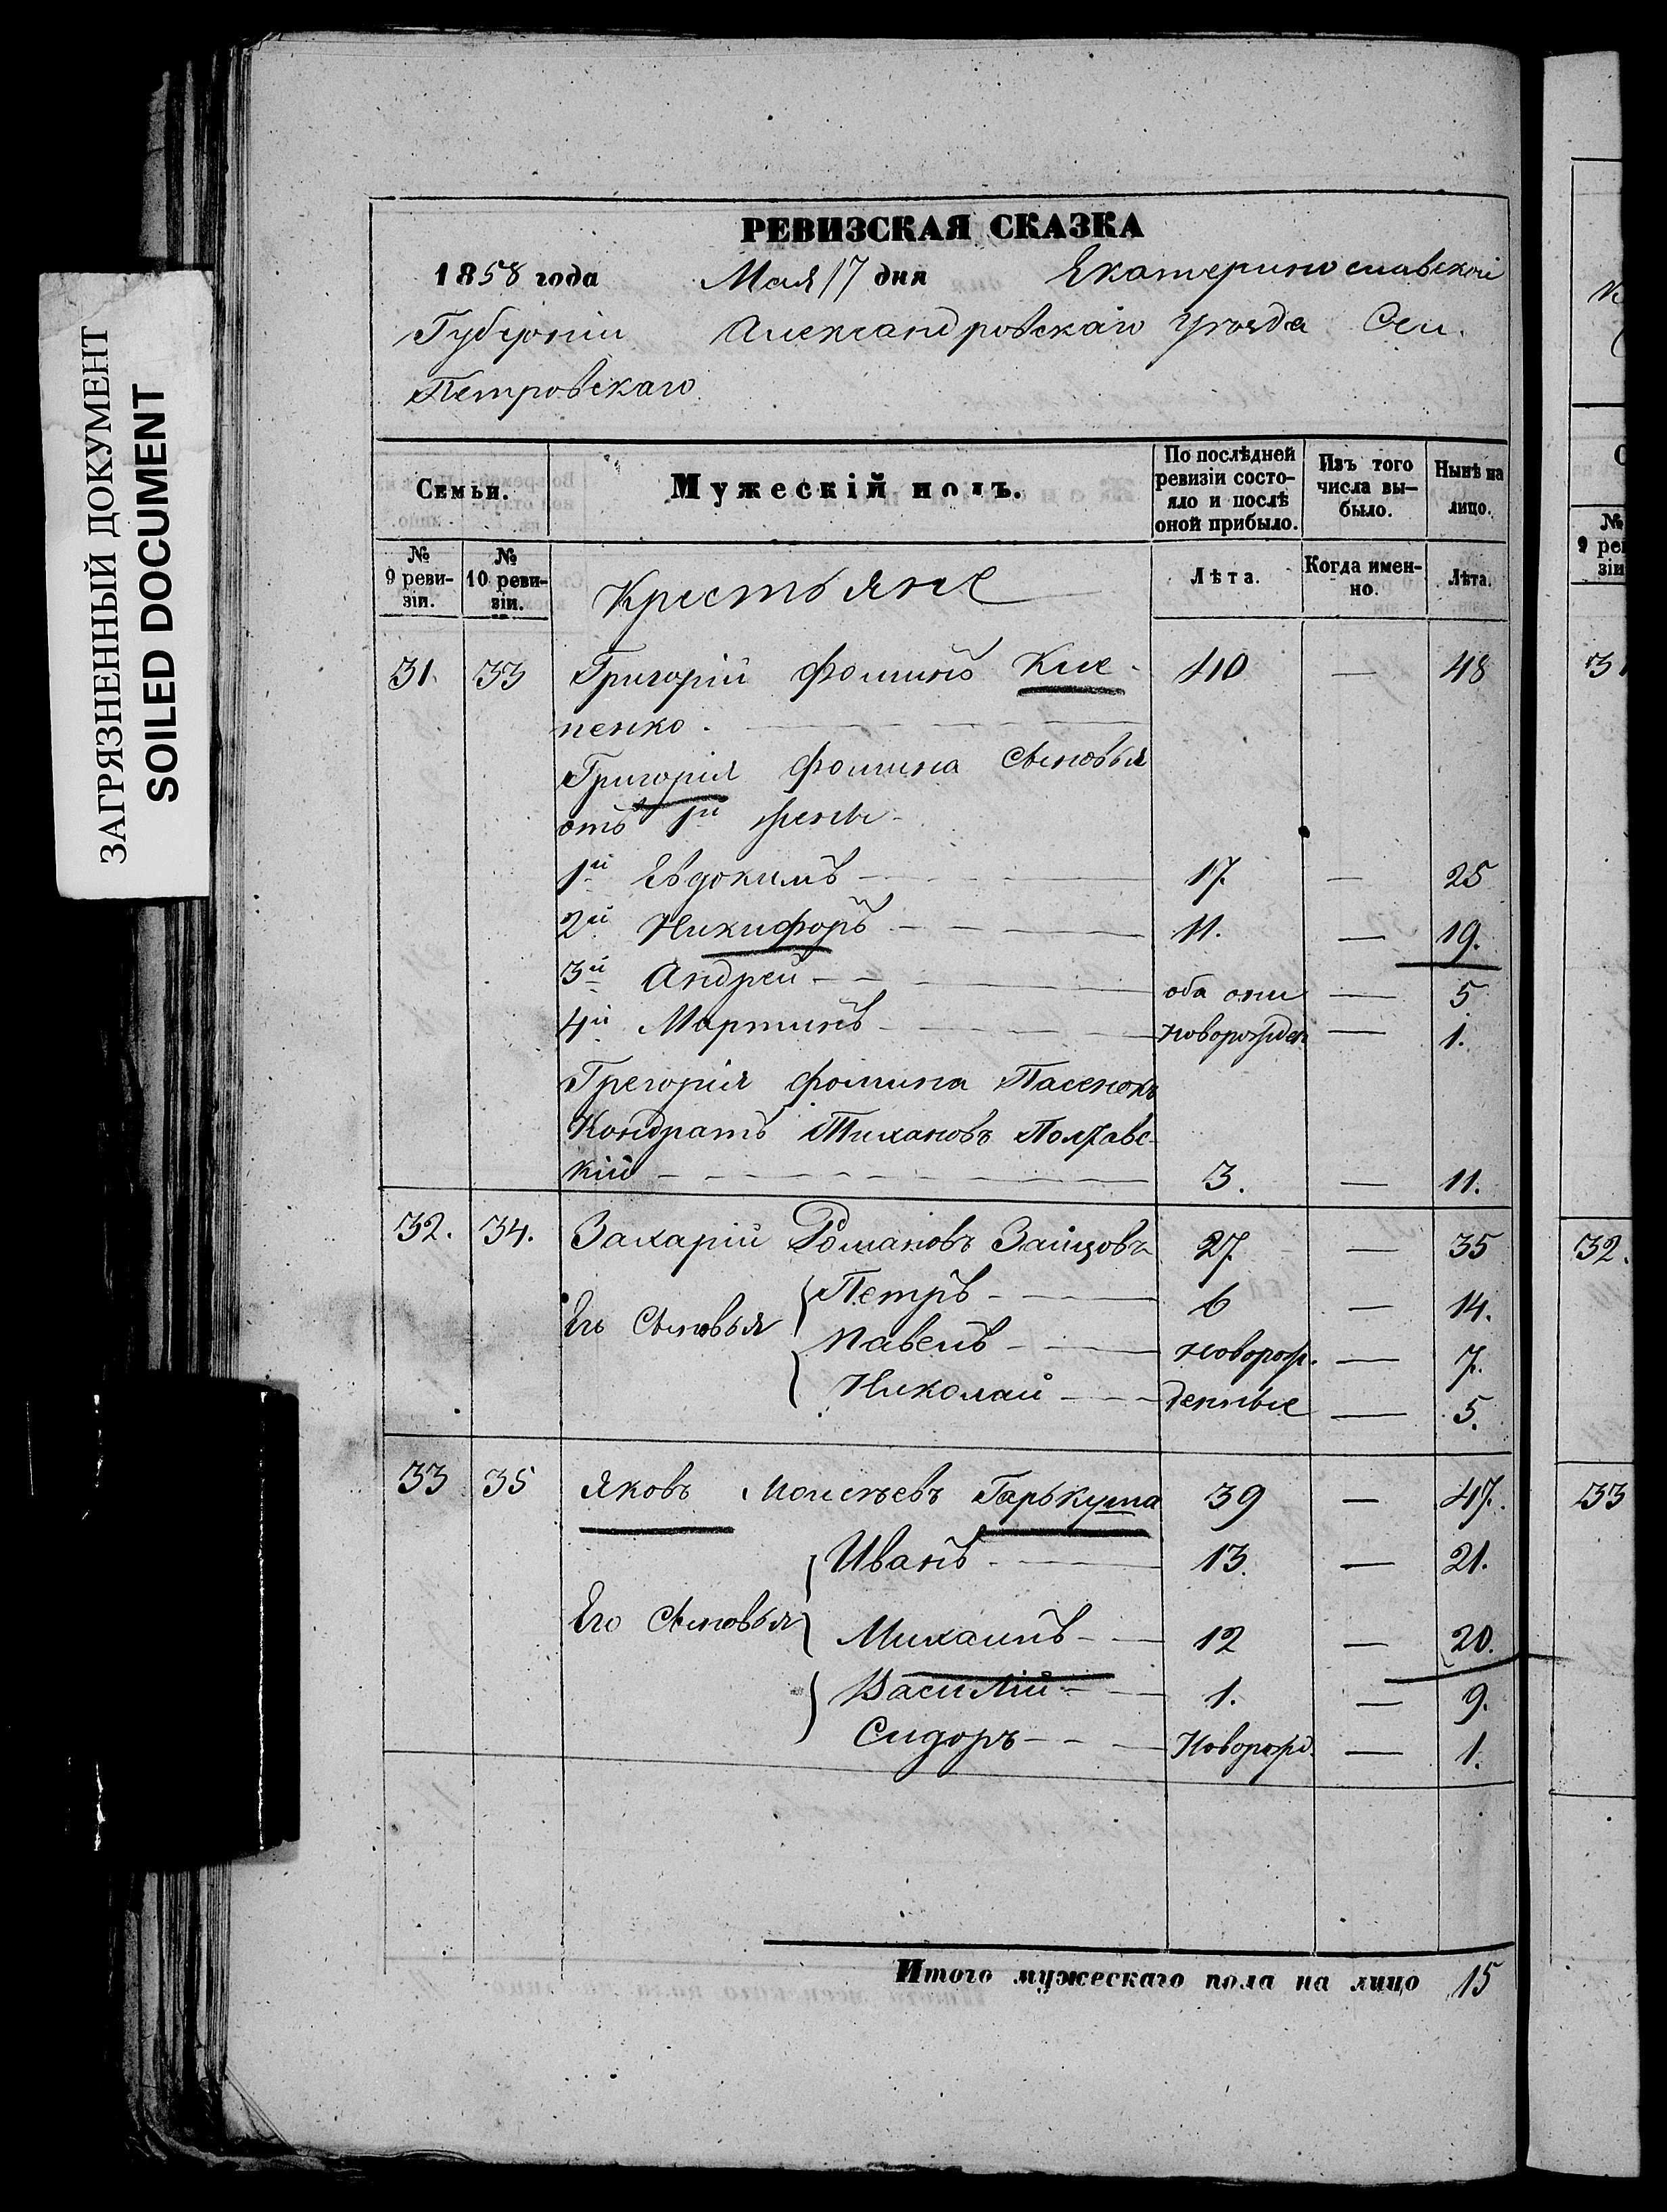 ЗАГРЯЗНЕННЫЙ ДОКУМЕНТ
SOILED DOCUMENT
РЕВИЗСКАЯ СКАЗКА
1858 года Мая 17 дня Екатеринославской
Губерніи Александровскаго уѣзда Сел.
Петровскаго
Семьи. Мужескій полъ. По послѣдней ревизіи состояло и послѣ оной прибыло. Изъ того числа выбыло. Нынѣ на лицо.
№ 9 ревизіи. № 10 ревизіи. Крестьяне Лѣта. Когда именно. Лѣта.
31. 33 Григорій Фоминъ Кле- 40 — 48
пенко.
Григорія Фомина Сыновья
отъ 1й жены
1й Евдокимъ 17. — 25
2й Никифоръ 11. — 19.
3й Андрей оба они — 5
4й Мартинъ новорожден — 1.
Грегорія Фомина Пасенокъ
Кондратъ Тихановъ Полтавс-
кій 3. — 11.
32. 34. Захарій Романовъ Зайцовъ 27. — 35
Его Сыновья Петръ 6 — 14.
Павелъ новорож. — 7.
Николай денные — 5.
33 35 Яковъ Моисѣевъ Гарькуша 39 — 47.
Иванъ 13. — 21.
Его Сыновья Михаилъ 12 — 20.
Василій 1. — 9.
Сидоръ Новорожд. — 1.
Итого мужескаго пола на лицо 15
№
9 ре
зіи
31
32.
33